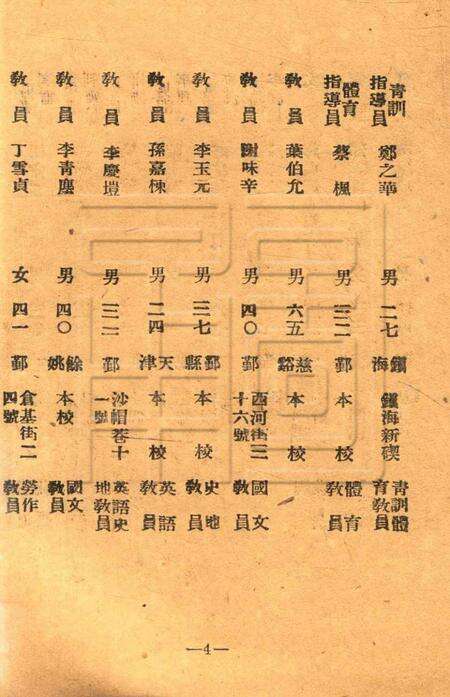 青訓指導員 鄭之華 男 二七 鎮海 鎮海新碶 青訓體育教員
體育指導員 蔡楓 男 三二 鄞 本校 體育教員
教員 葉伯允 男 六五 慈谿 本校
教員 謝味辛 男 四〇 鄞 西河街三十六號 國文教員
教員 李玉元 男 三七 鄞縣 本校 史地教員
教員 孫嘉棟 男 二四 天津 本校 英語教員
教員 李慶塏 男 三二 鄞 沙帽巷十一號 英語史地教員
教員 李青塵 男 四〇 餘姚 本校 國文教員
教員 丁雪貞 女 四一 鄞 倉基街二四號 勞作教員
—4—